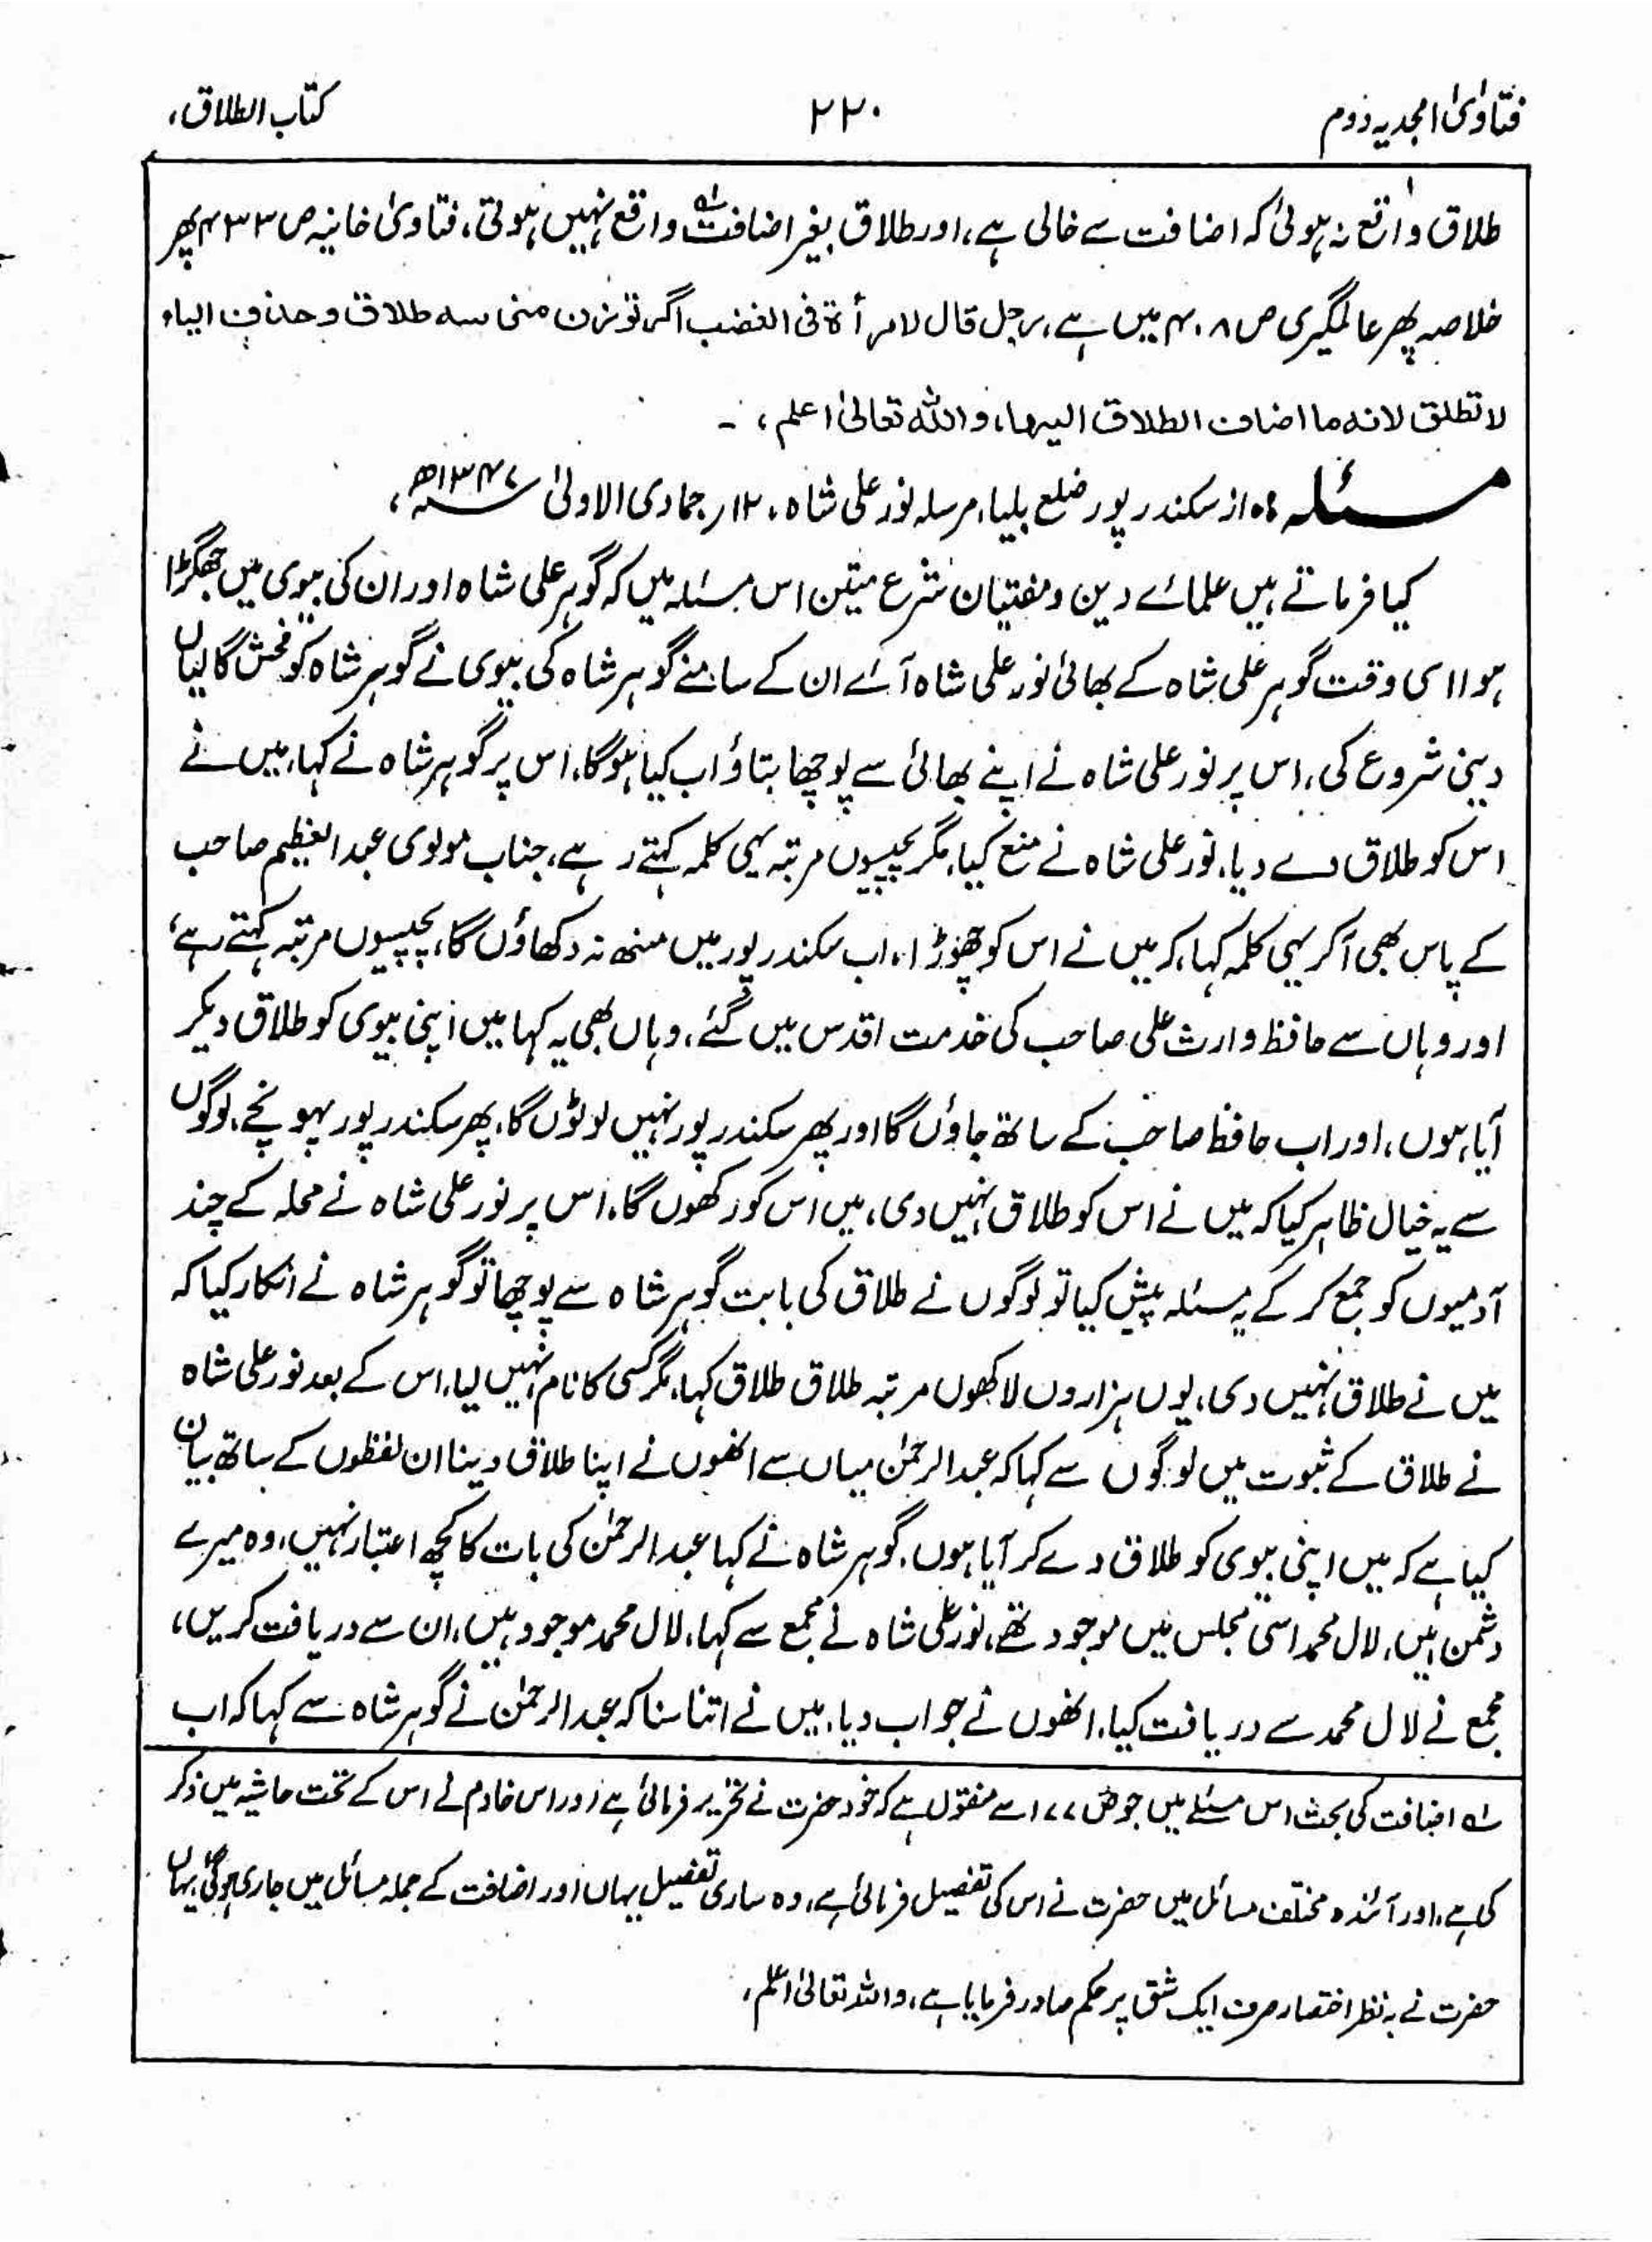 فتاویٰ امجدیہ دوم
۲۲۰
کتاب الطلاق،
طلاق واقع نہ ہوئی کہ اضافت سے خالی ہے، اور طلاق بغیر اضافت لہ واقع نہیں ہوتی، فتاویٰ خانیہ ص ۴۳۳ پھر
خلاصہ پھر عالمگیری ص ۴۰۸ میں ہے، رجل قال لامرأۃ فی الغضب اگر تو زن منی سہ طلاق وحذف الیاء
لا تطلق لانہ ما اضاف الطلاق الیہا، واللہ تعالیٰ اعلم، ۔
مسئلہ :۔ از سکندر پور ضلع بلیا، مرسلہ نور علی شاہ، ۱۲ر جمادی الاولیٰ ۱۳۴۷ھ،
کیا فرماتے ہیں علمائے دین ومفتیان شرع متین اس مسئلہ میں کہ گوہر علی شاہ اور ان کی بیوی میں جھگڑا
ہوا اسی وقت گوہر علی شاہ کے بھائی نور علی شاہ آئے ان کے سامنے گوہر شاہ کی بیوی نے گوہر شاہ کو فحش گالیاں
دینی شروع کی، اس پر نور علی شاہ نے اپنے بھائی سے پوچھا بتاؤ اب کیا ہوگا، اس پر گوہر شاہ نے کہا، میں نے
اس کو طلاق دے دیا، نور علی شاہ نے منع کیا، مگر پچیسوں مرتبہ یہی کلمہ کہتے رہے، جناب مولوی عبد العظیم صاحب
کے پاس بھی آکر یہی کلمہ کہا، کہ میں نے اس کو چھوڑا، اب سکندر پور میں منھ نہ دکھاؤں گا، پچیسوں مرتبہ کہتے رہے،
اور وہاں سے حافظ وارث علی صاحب کی خدمت اقدس میں گئے، وہاں بھی یہ کہا میں اپنی بیوی کو طلاق دیکر
آیا ہوں، اور اب حافظ صاحب کے ساتھ جاؤں گا اور پھر سکندر پور نہیں لوٹوں گا، پھر سکندر پور پہونچے، لوگوں
سے یہ خیال ظاہر کیا کہ میں نے اس کو طلاق نہیں دی، میں اس کو رکھوں گا، اس پر نور علی شاہ نے محلہ کے چند
آدمیوں کو جمع کر کے یہ مسئلہ پیش کیا تو لوگوں نے طلاق کی بابت گوہر شاہ سے پوچھا تو گوہر شاہ نے انکار کیا کہ
میں نے طلاق نہیں دی، یوں ہزاروں لاکھوں مرتبہ طلاق طلاق کہا، مگر کسی کا نام نہیں لیا، اس کے بعد نور علی شاہ
نے طلاق کے ثبوت میں لوگوں سے کہا کہ عبد الرحمٰن میاں سے انھوں نے اپنا طلاق دینا ان لفظوں کے ساتھ بیان
کیا ہے کہ میں اپنی بیوی کو طلاق دے کر آیا ہوں، گوہر شاہ نے کہا عبد الرحمٰن کی بات کا کچھ اعتبار نہیں، وہ میرے
دشمن ہیں، لال محمد اسی مجلس میں موجود تھے، نور علی شاہ نے مجمع سے کہا، لال محمد موجود ہیں، ان سے دریافت کریں،
مجمع نے لال محمد سے دریافت کیا، انھوں نے جواب دیا، میں نے اتنا سنا کہ عبد الرحمٰن نے گوہر شاہ سے کہا کہ اب
لہ اضافت کی بحث اس مسئلے میں جو ص ۱۷۷ سے منقول ہے کہ خود حضرت نے تحریر فرمائی ہے اور اس خادم نے اس کے تحت حاشیہ میں ذکر
کی ہے، اور آئندہ مختلف مسائل میں حضرت نے اس کی تفصیل فرمائی ہے، وہ ساری تفصیل یہاں اور اضافت کے جملہ مسائل میں جاری ہوگی، یہاں
حضرت نے بہ نظر اختصار صرف ایک شق پر حکم صادر فرمایا ہے، واللہ تعالیٰ اعلم،